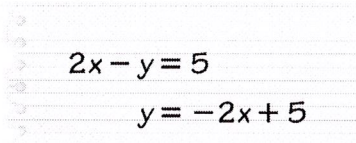 2x − y = 5
y = −2x + 5